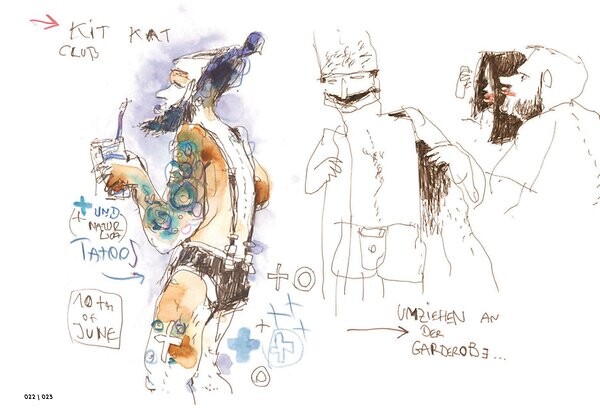 KIT KAT
CLUB
+ UND
TATOOS
10th
OF
JUNE
UMZIEHEN AN
DER
GARDEROBE...
022 | 023